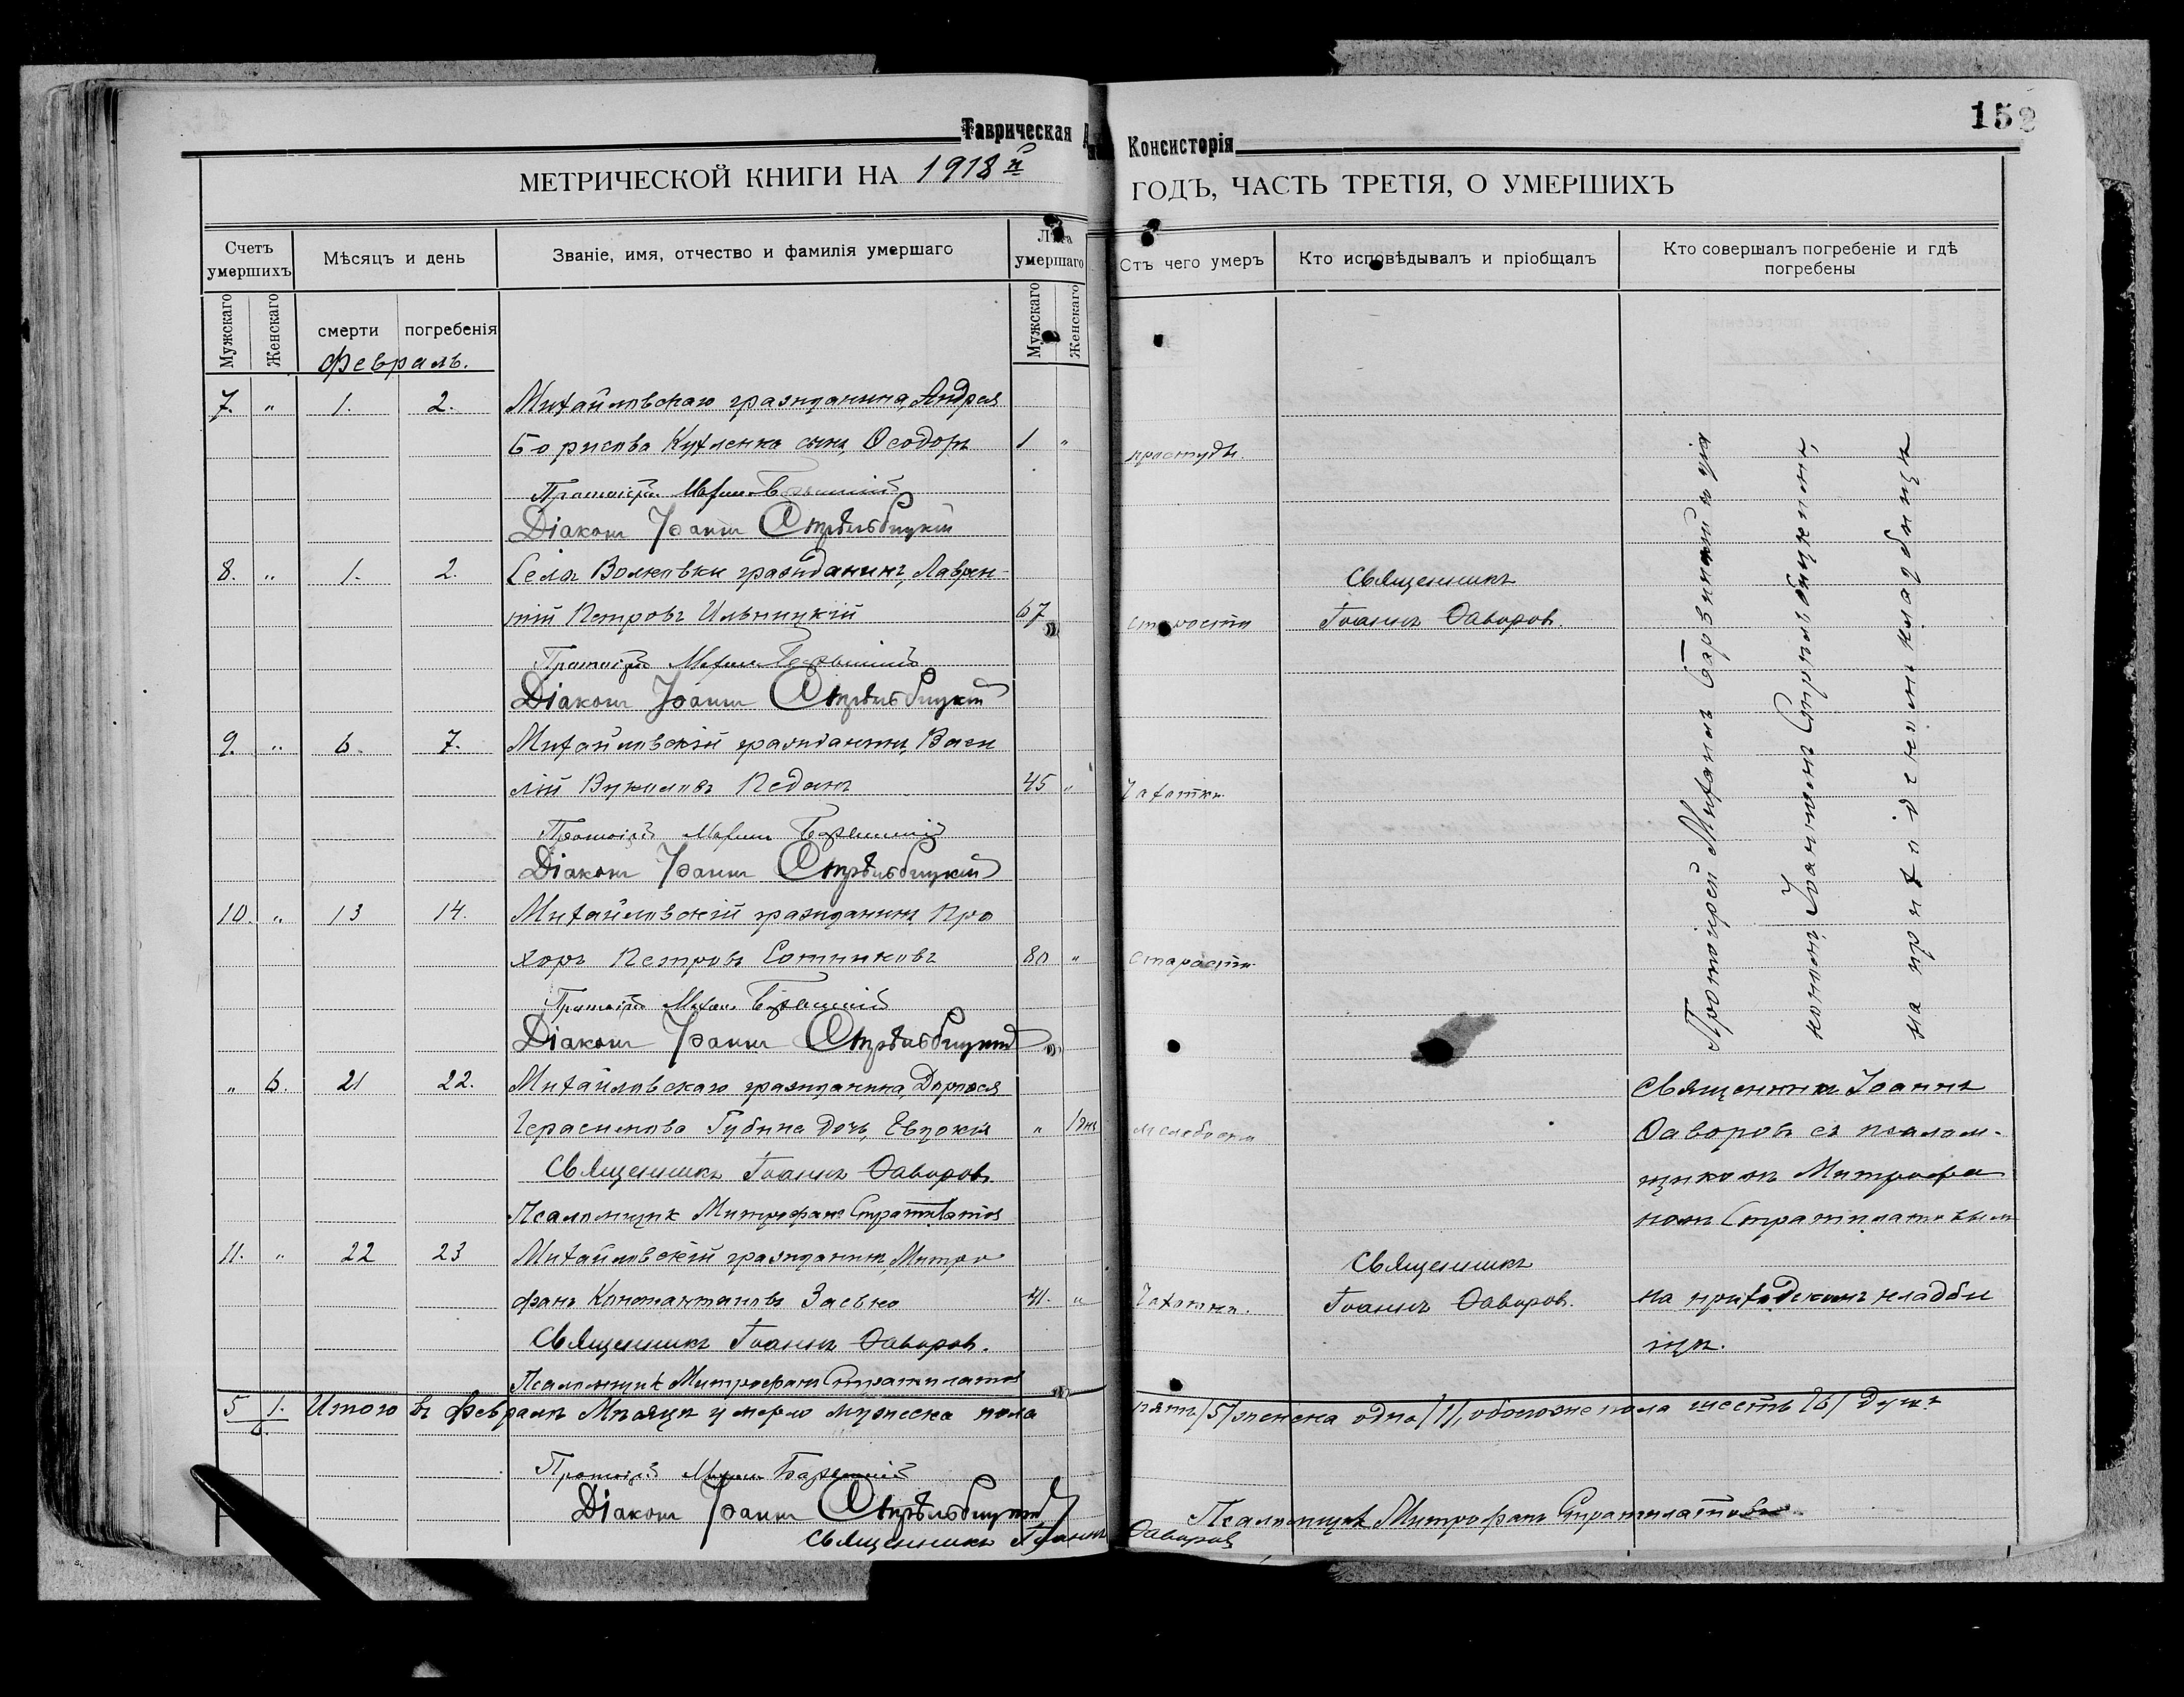 152
Таврическая
Консисторія
МЕТРИЧЕСКОЙ КНИГИ НА 1918 й
ГОДЪ, ЧАСТЬ ТРЕТІЯ, О УМЕРШИХЪ
Счетъ умершихъ
Мѣсяцъ и день
Званіе, имя, отчество и фамилія умершаго
Лѣта умершаго
Отъ чего умеръ
Кто исповѣдывалъ и пріобщалъ
Кто совершалъ погребеніе и гдѣ погребены
Мужскаго Женскаго
смерти погребенія
Мужскаго Женскаго
Февраль.
7. " 1. 2. Михайловскаго гражданина, Андрея
Борисова сынъ, Ѳеодоръ 1 " простуды
Протоіерей Михаилъ
Діаконъ Іоаннъ Стрѣльбицкій
8. " 1. 2. Села Волковки гражданинъ, Лаврен-
тій Петровъ Ильницкій 67 старости
Священникъ
Іоаннъ Ѳаворов.
Протоіерей Михаилъ
Діаконъ Іоаннъ Стрѣльбицкій
9. " 6. 7. Михайловскій гражданинъ, Васи
лій Вуколовъ Педанъ 45 " Чахотки
Протоіерей Михаилъ
Діаконъ Іоаннъ Стрѣльбицкій
10. " 13 14. Михайловскій гражданинъ Про
хоръ Петровъ Сотниковъ 80 " Старости
Протоіерей Михаилъ
Діаконъ Іоаннъ Стрѣльбицкій
Протоіерей Михаилъ съ діа
кономъ Іоанномъ Стрѣльбицкимъ
на приходскомъ кладбищѣ
" 6. 21 22. Михайловскаго гражданина, Дорофея
Герасимова Губина дочь, Евдокія "
Священникъ Іоаннъ Ѳаворов.
Псаломщик Митрофанъ Стратилатов
Священникъ Іоаннъ
Ѳаворовъ съ псалом-
щикомъ Митрофа
номъ Стратилатовым
11. " 22 23 Михайловскій гражданинъ, Митро
фанъ Константиновъ Засько 41. " Чахотки.
Священникъ
Іоаннъ Ѳаворов.
на приходскомъ кладби
щѣ.
Священникъ Іоаннъ Ѳаворов.
Псаломщик Митрофанъ Стратилатов
5 1. Итого въ Февралѣ Мѣсяцѣ умерло мужеска пола пять /5/ женска одна /1/, обоего же пола шесть /6/ душъ
6.
Протоіерей Михаилъ
Діаконъ Іоаннъ Стрѣльбицкій
Священникъ Іоаннъ Ѳаворов
Псаломщикъ Митрофанъ Стратилатовъ